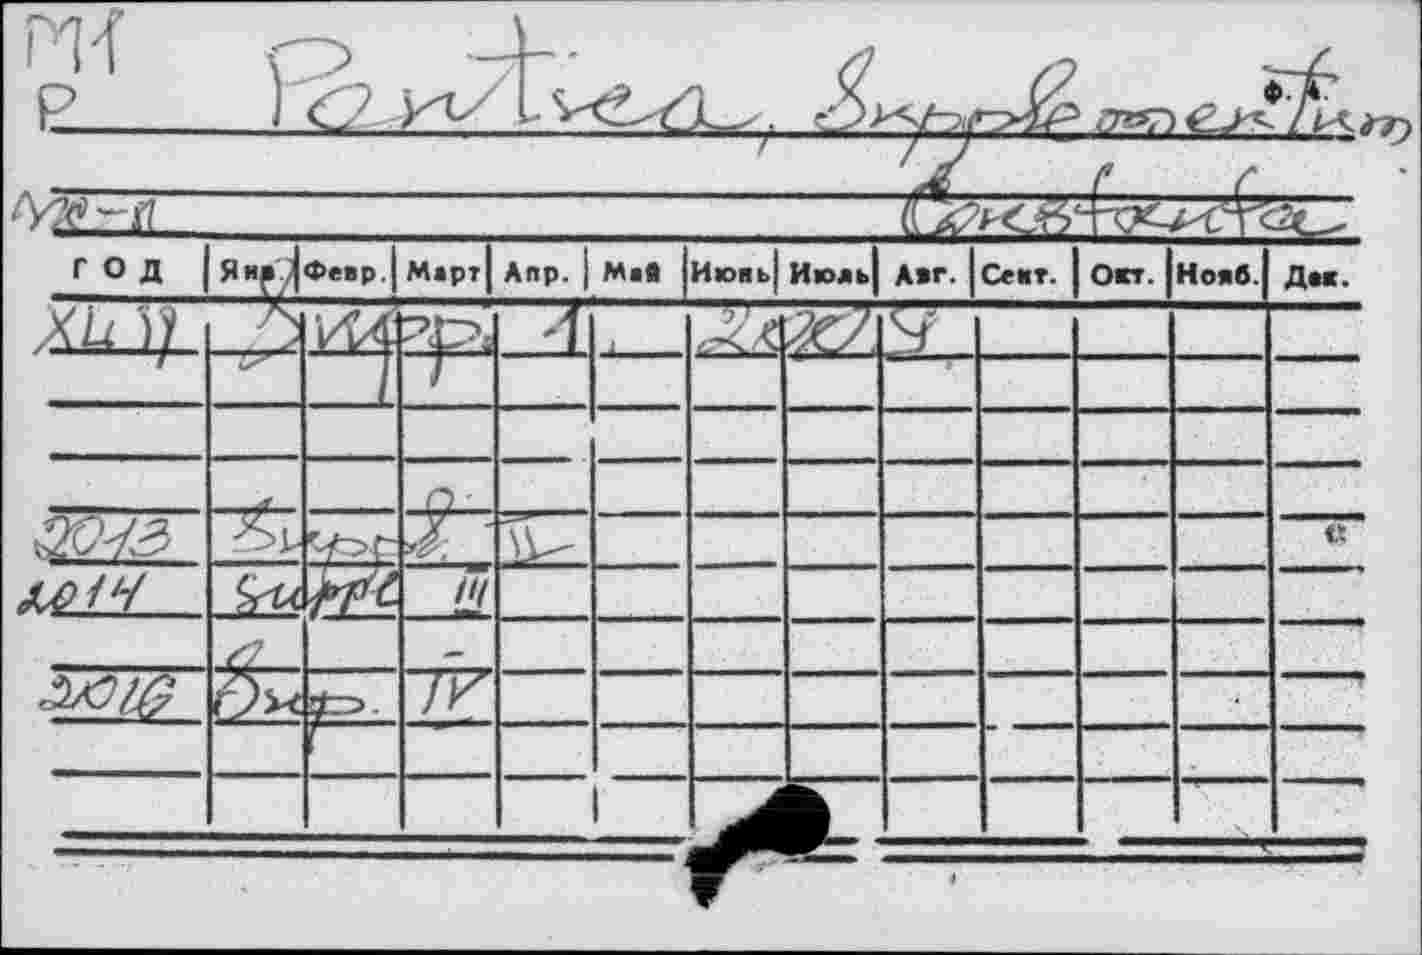 П1
P Pontica, Supplementum
Constanta
ГОД Янв. Февр. Март Апр. Май Июнь Июль Авг. Сент. Окт. Нояб. Дек.
Supp. 1, 2009
2013 Suppl. II
2014 Suppl III
2016 Sup. IV